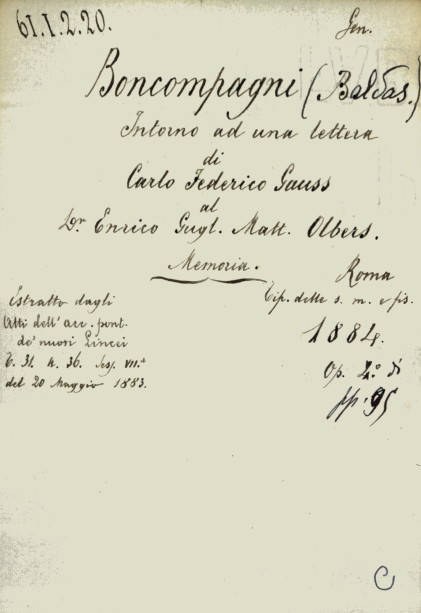 61.1.2.20.
Gen.
Boncompagni (Baldas.)
Intorno ad una lettera
di
Carlo Federico Gauss
al
Dr. Enrico Gugl. Matt. Olbers.
Memoria.
Estratto dagli
Atti dell'acc. pont.
de' nuovi Lincei
T. 31. A. 36. Sess. VII.a
del 20 Maggio 1883.
Roma
Tip. delle s. m. e fis.
1884.
Op. 4.o di
pp. 95
C